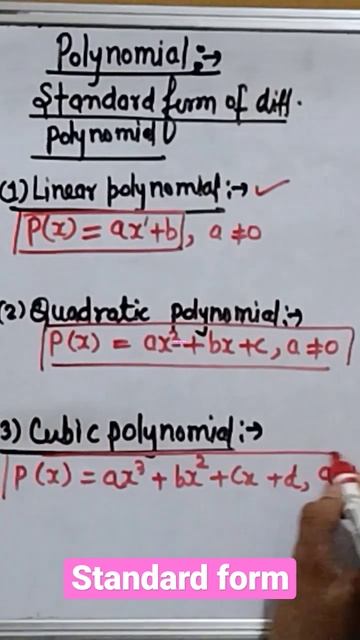 Polynomial :→
Standard form of diff.
polynomial
(1) Linear polynomial :→ ✓
P(x) = ax¹+b, a ≠0
(2) Quadratic polynomial :→
P(x) = ax²+bx+c, a ≠0
3) Cubic polynomial :→
P(x) = ax³ + bx² + cx + d, a
Standard form